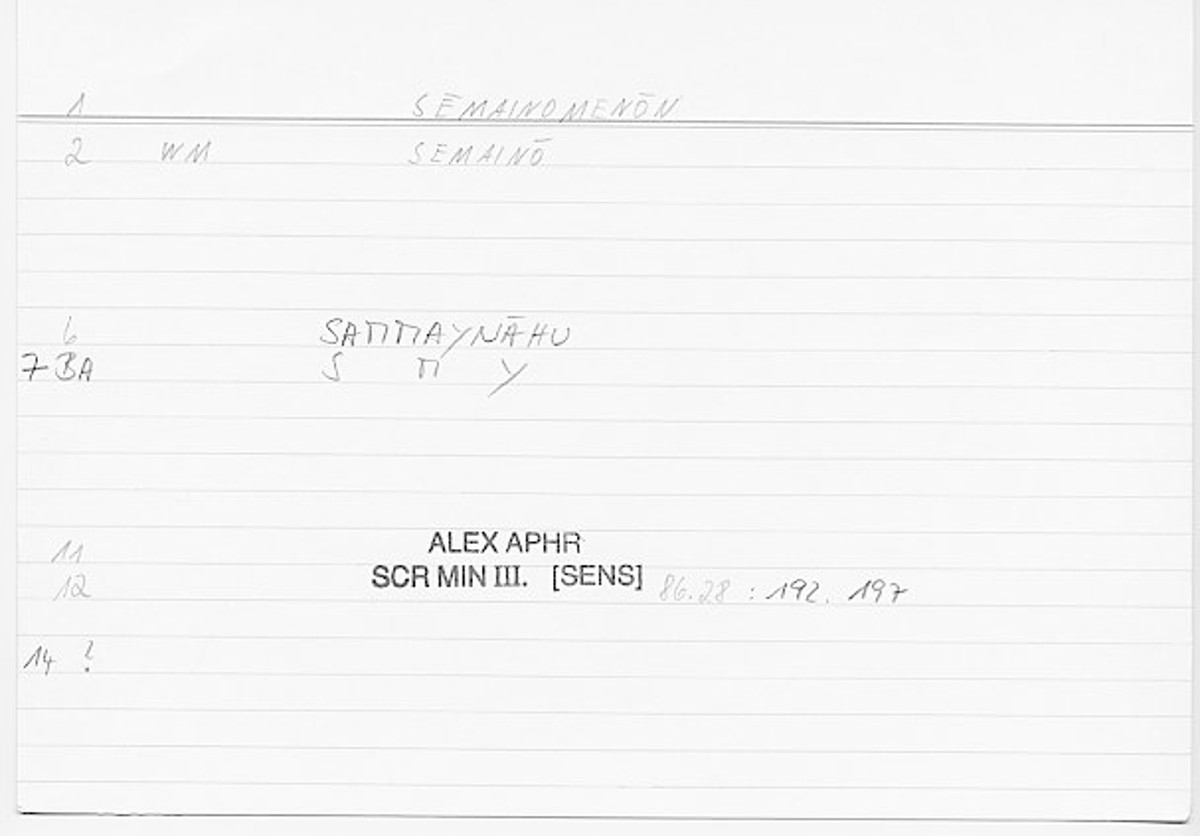 1 SĒMAINOMENŌN
2 WM SEMAINŌ
6 SAMMAYNĀHU
7 BA S M Y
11 ALEX APHR
12 SCR MIN III. [SENS] 86.28 : 192. 197
14 ?